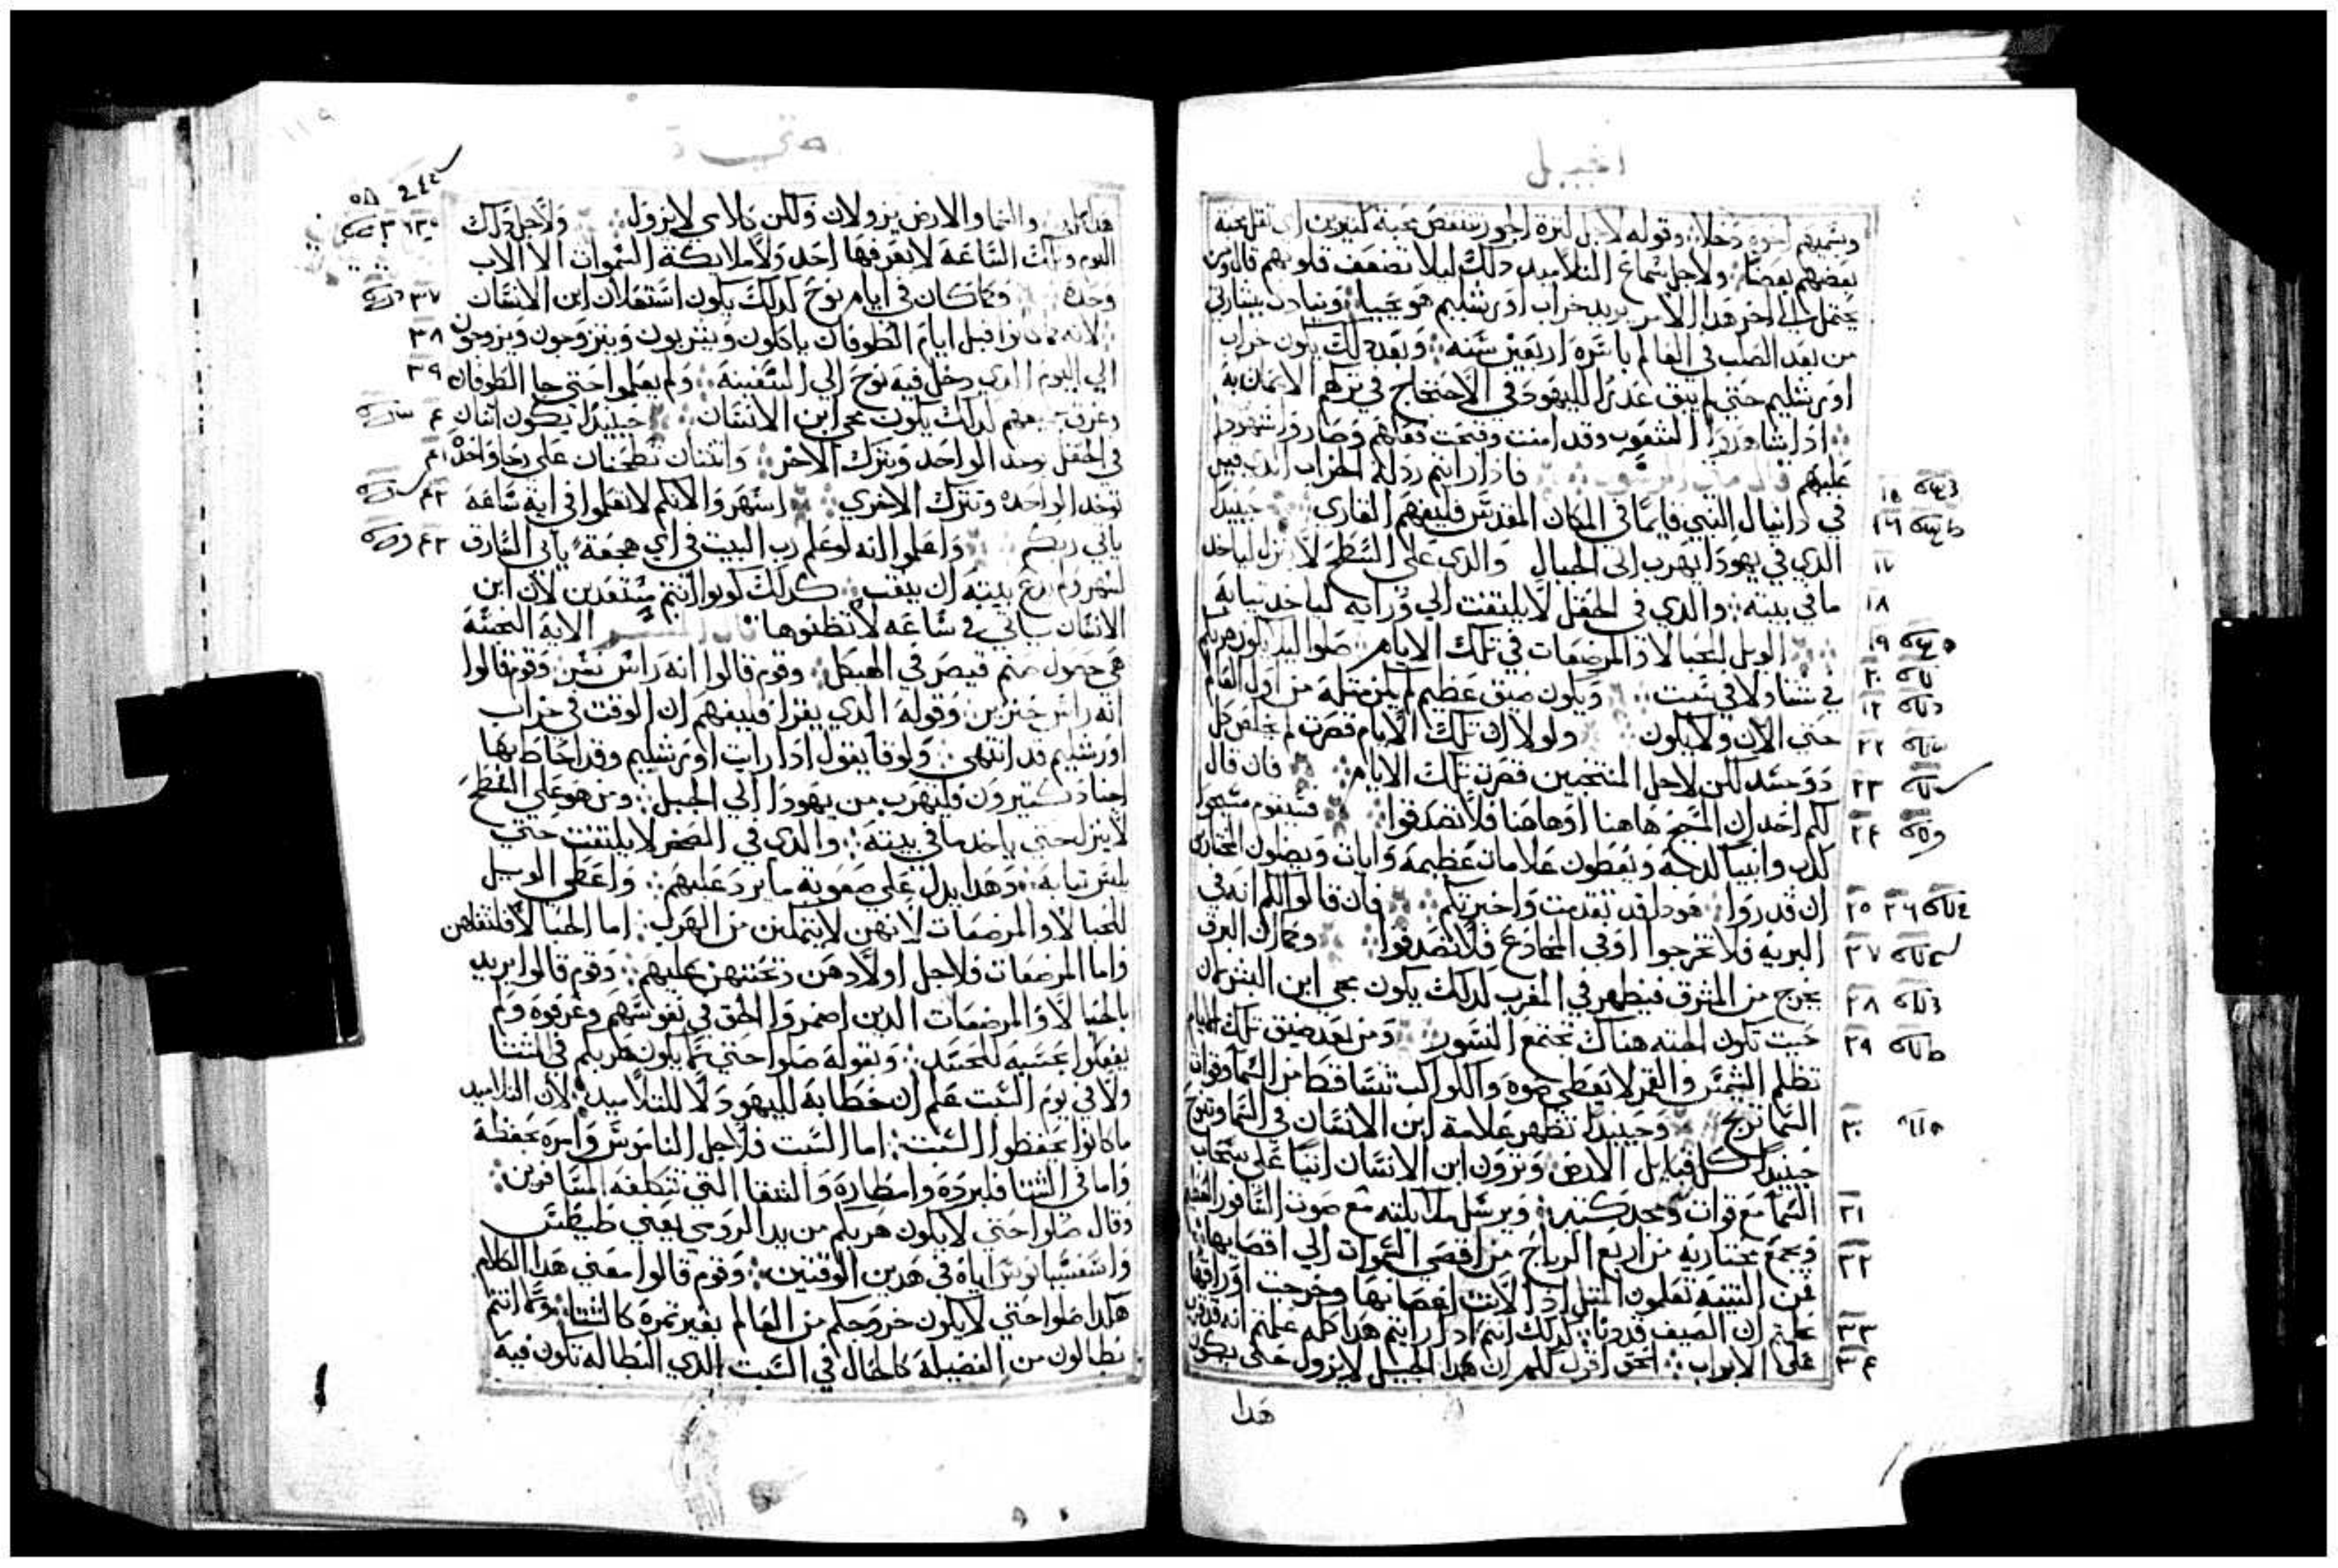 انجيل
ويشمتهم اخوة دخلا وقوله لاجل لثرة الجور تنتقص محبة لتيرين اي تقل محبة
بعضهم بعضا ولاجل سماع التلاميد دلك ليلا تضعف قلوبهم قال ومن
يحتمل الي اخر هدا الامر يريد خراب اورشليم هو يحيا وينادى ببشارتي
من بعد الصلب في العالم باسره اربعين سنه وبعد دلك يكون خراب
اورشليم حتي لم يبق عدرا لليهود في الاحتجاج في تركهم الايمان به
ادا شاهدوا الشعوب وقد امنت وفتحت وصاروا شهودا
عليهم فادا رايتم ردلة الخراب الدي قيل
١٥ في دانيال النبي قايما في المكان المقدس فليفهم القاري حينيد
١٦ الدي في يهودا يهرب الي الجبال والدي على السطح لا ينزل لياخد
١٧ ما في بيته والدي في الحقل لا يلتفت الي ورايه لياخد تيابه
١٨
١٩ الويل للحبالا والمرضعات في تلك الايام صلوا ليلا يكون هربكم
٢٠ في شتا ولا في سبت ويكون ضيق عظيم لم يكن متله من اول العالم
٢١ حتي الان ولا يكون ولولا ان تلك الايام قصرت لم يخلص كل
٢٢
٢٣ دو جسد لكن لاجل المنتخبين قصرت تلك الايام فان قال
لكم احد ان المسيح هاهنا او هاهنا فلا تصدقوا فسيقوم مسحوا
٢٤ كدب وانبيا كدبة ويعطون علامات عظيمة وايات ويضلون المختارين
٢٥ ٢٦ ان قدروا هودا قد تقدمت واخبرتكم فان قالوا لكم انه في
٢٧ البرية فلا تخرجوا او في المخادع فلا تصدقوا وكما ان البرق
٢٨ يخرج من المشرق فيظهر في المغرب لدلك يكون مجي ابن البشر لان
٢٩ حيت تكون الجته هناك تجتمع النسور ومن بعد ضيق تلك الايام
تظلم الشمس والقمر لا يعطي ضوه والكواكب تتساقط من السما وقوات
٣٠ السما ترتج وحينيدا تظهر علامة ابن الانسان في السما وتنوح
حينيدا كل قبايل الارض وترون ابن الانسان اتيا على سحاب
٣١ السما مع قوات ومجد كتير ويرسل ملايكته مع صوت الساقور العظيم
٣٢ ويجمع مختاريه من اربع الرياح من اقصي السموات الي اقصايها
فمن التينه تعلمون المتل ادا لانت اغصانها وخرجت اوراقها
٣٣ علمتم ان الصيف قد دنا لدلك انتم ادا رايتم هدا كله علمتم انه قد قرب
٣٤ على الابواب الحق اقول لكم ان هدا الجيل لا يزول حتي يكون
هدا
متي
١١٩
هدا كله والسما والارض يزولان ولكن كلامي لا يزول ولاجل دلك
اليوم وتلك الساعة لا يعرفها احد ولا ملايكة السموات الا الاب
وحده وكما كان في ايام نوح لدلك يكون استعلان ابن الانسان ٣٧
لانه كما كانوا قبل ايام الطوفان ياكلون ويشربون ويتزوجون ويزوجون ٣٨
الي اليوم الدي دخل فيه نوح الي السفينة ولم يعلموا حتي جا الطوفان ٣٩
وغرق جميعهم لدلك يكون مجي ابن الانسان حينيدا يكون اتنان ٤٠
في الحقل يوخد الواحد ويترك الاخر واتنتان تطحنان على رحا واحدة ٤١
توخد الواحده وتترك الاخري اسهروا لانكم لا تعلموا في اية ساعة ٤٢
ياتي ربكم واعلموا انه لو علم رب البيت في اي هجعة ياتي السارق ٤٣
لسهر ولم يدع بيته ان ينقب كدلك كونوا انتم مستعدين لان ابن
الانسان سياتي في ساعه لا تظنوها الاية النجسة
هي حصول صنم قيصر في الهيكل وقوم قالوا انه راس نسر وقوم قالوا
انه راس خنزير وقوله الدي يقرا فليفهم ان الوقت في خراب
اورشليم قد انتهي ولوقا يقول ادا رايت اورشليم وقد احاط بها
اجناد كتيرون فليهرب من يهودا الي الجبل ومن هو على السطح
لا ينزل حتي ياخد ما في بيته والدي في الصحر لا يلتفت حتي
يلبس تيابه وهدا يدل على صعوبة ما يرد عليهم واعطى الويل
للحبالا والمرضعات لانهن لا يتمكنن من الهرب اما الحبالا فلتقلهن
واما المرضعات فلاجل اولادهن وتحننهن عليهم وقوم قالوا يريد
بالحبالا والمرضعات الدين اضمروا الحق في نفوسهم وعرفوه ولم
يفعلوا بحسبه للحسد وبقوله صلوا حتي لا يكون هربكم في الشتا
ولا في يوم السبت علم ان خطابه لليهود لا للتلاميد لان التلاميد
ما كانوا يحفظوا السبت اما السبت فلاجل الناموس وامره بحفظه
واما في الشتا فلبرده وامطاره والشقا التي تتكلفه المسافرين
وقال صلوا حتي لا يكون هربكم من يد الرومي يعني طيطس
واسفسيانوس اياه في هدين الوقتين وقوم قالوا معني هدا الكلام
هكدا صلوا حتي لا يكون خروجكم من العالم بغير تمرة كالشتا وكما انتم
بطالون من الفضيلة كالحال في السبت الدي البطاله تكون فيه